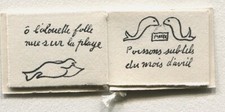 ô l'alouette folle
nue sur la plage
Poissons subtils
du mois d'avril